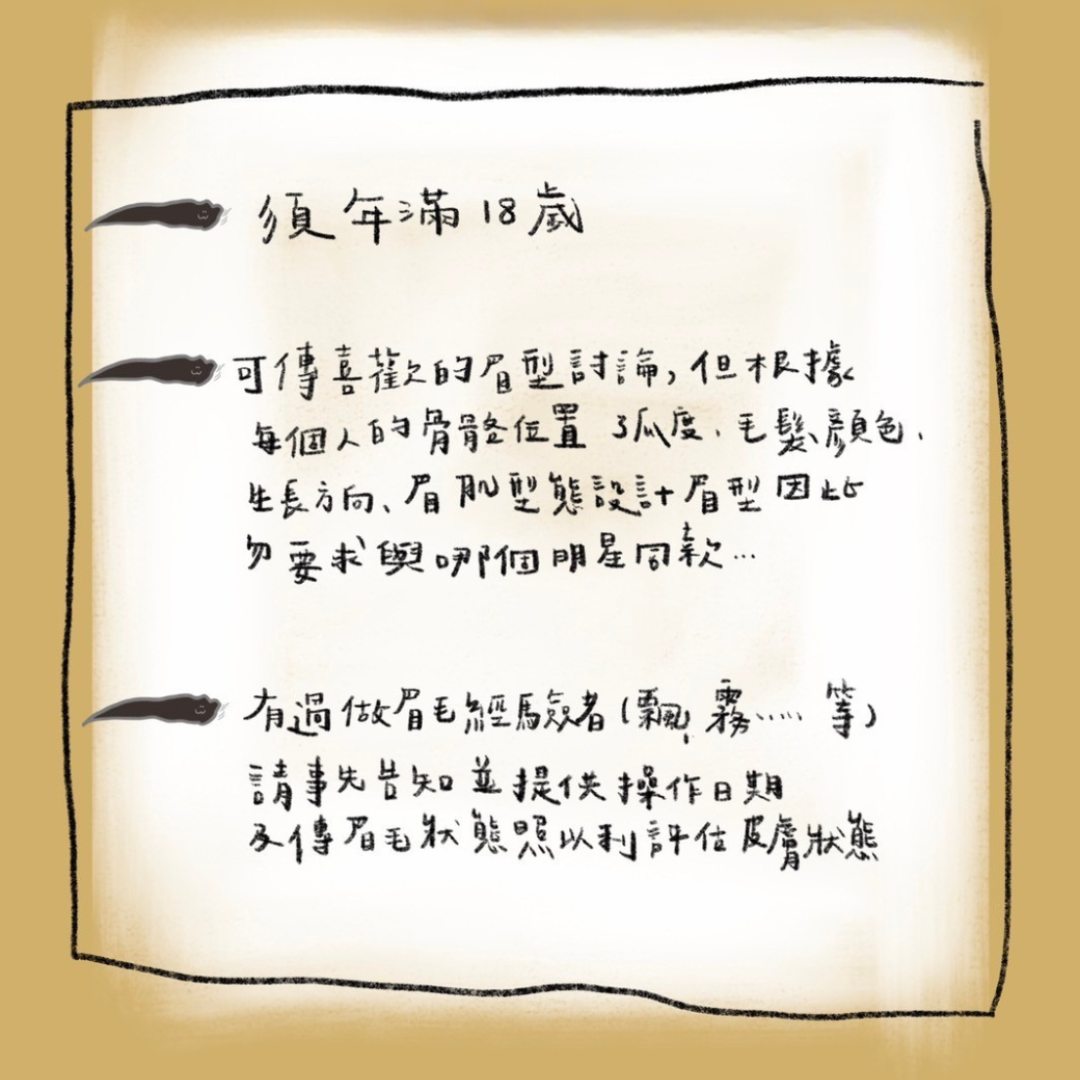 須年滿18歲
可傳喜歡的眉型討論,但根據
每個人的骨骼位置弧度、毛髮顏色、
生長方向、眉肌型態設計眉型因此
勿要求與哪個明星同款...
有過做眉毛經驗者(飄,霧.....等)
請事先告知並提供操作日期
及傳眉毛狀態照以利評估皮膚狀態